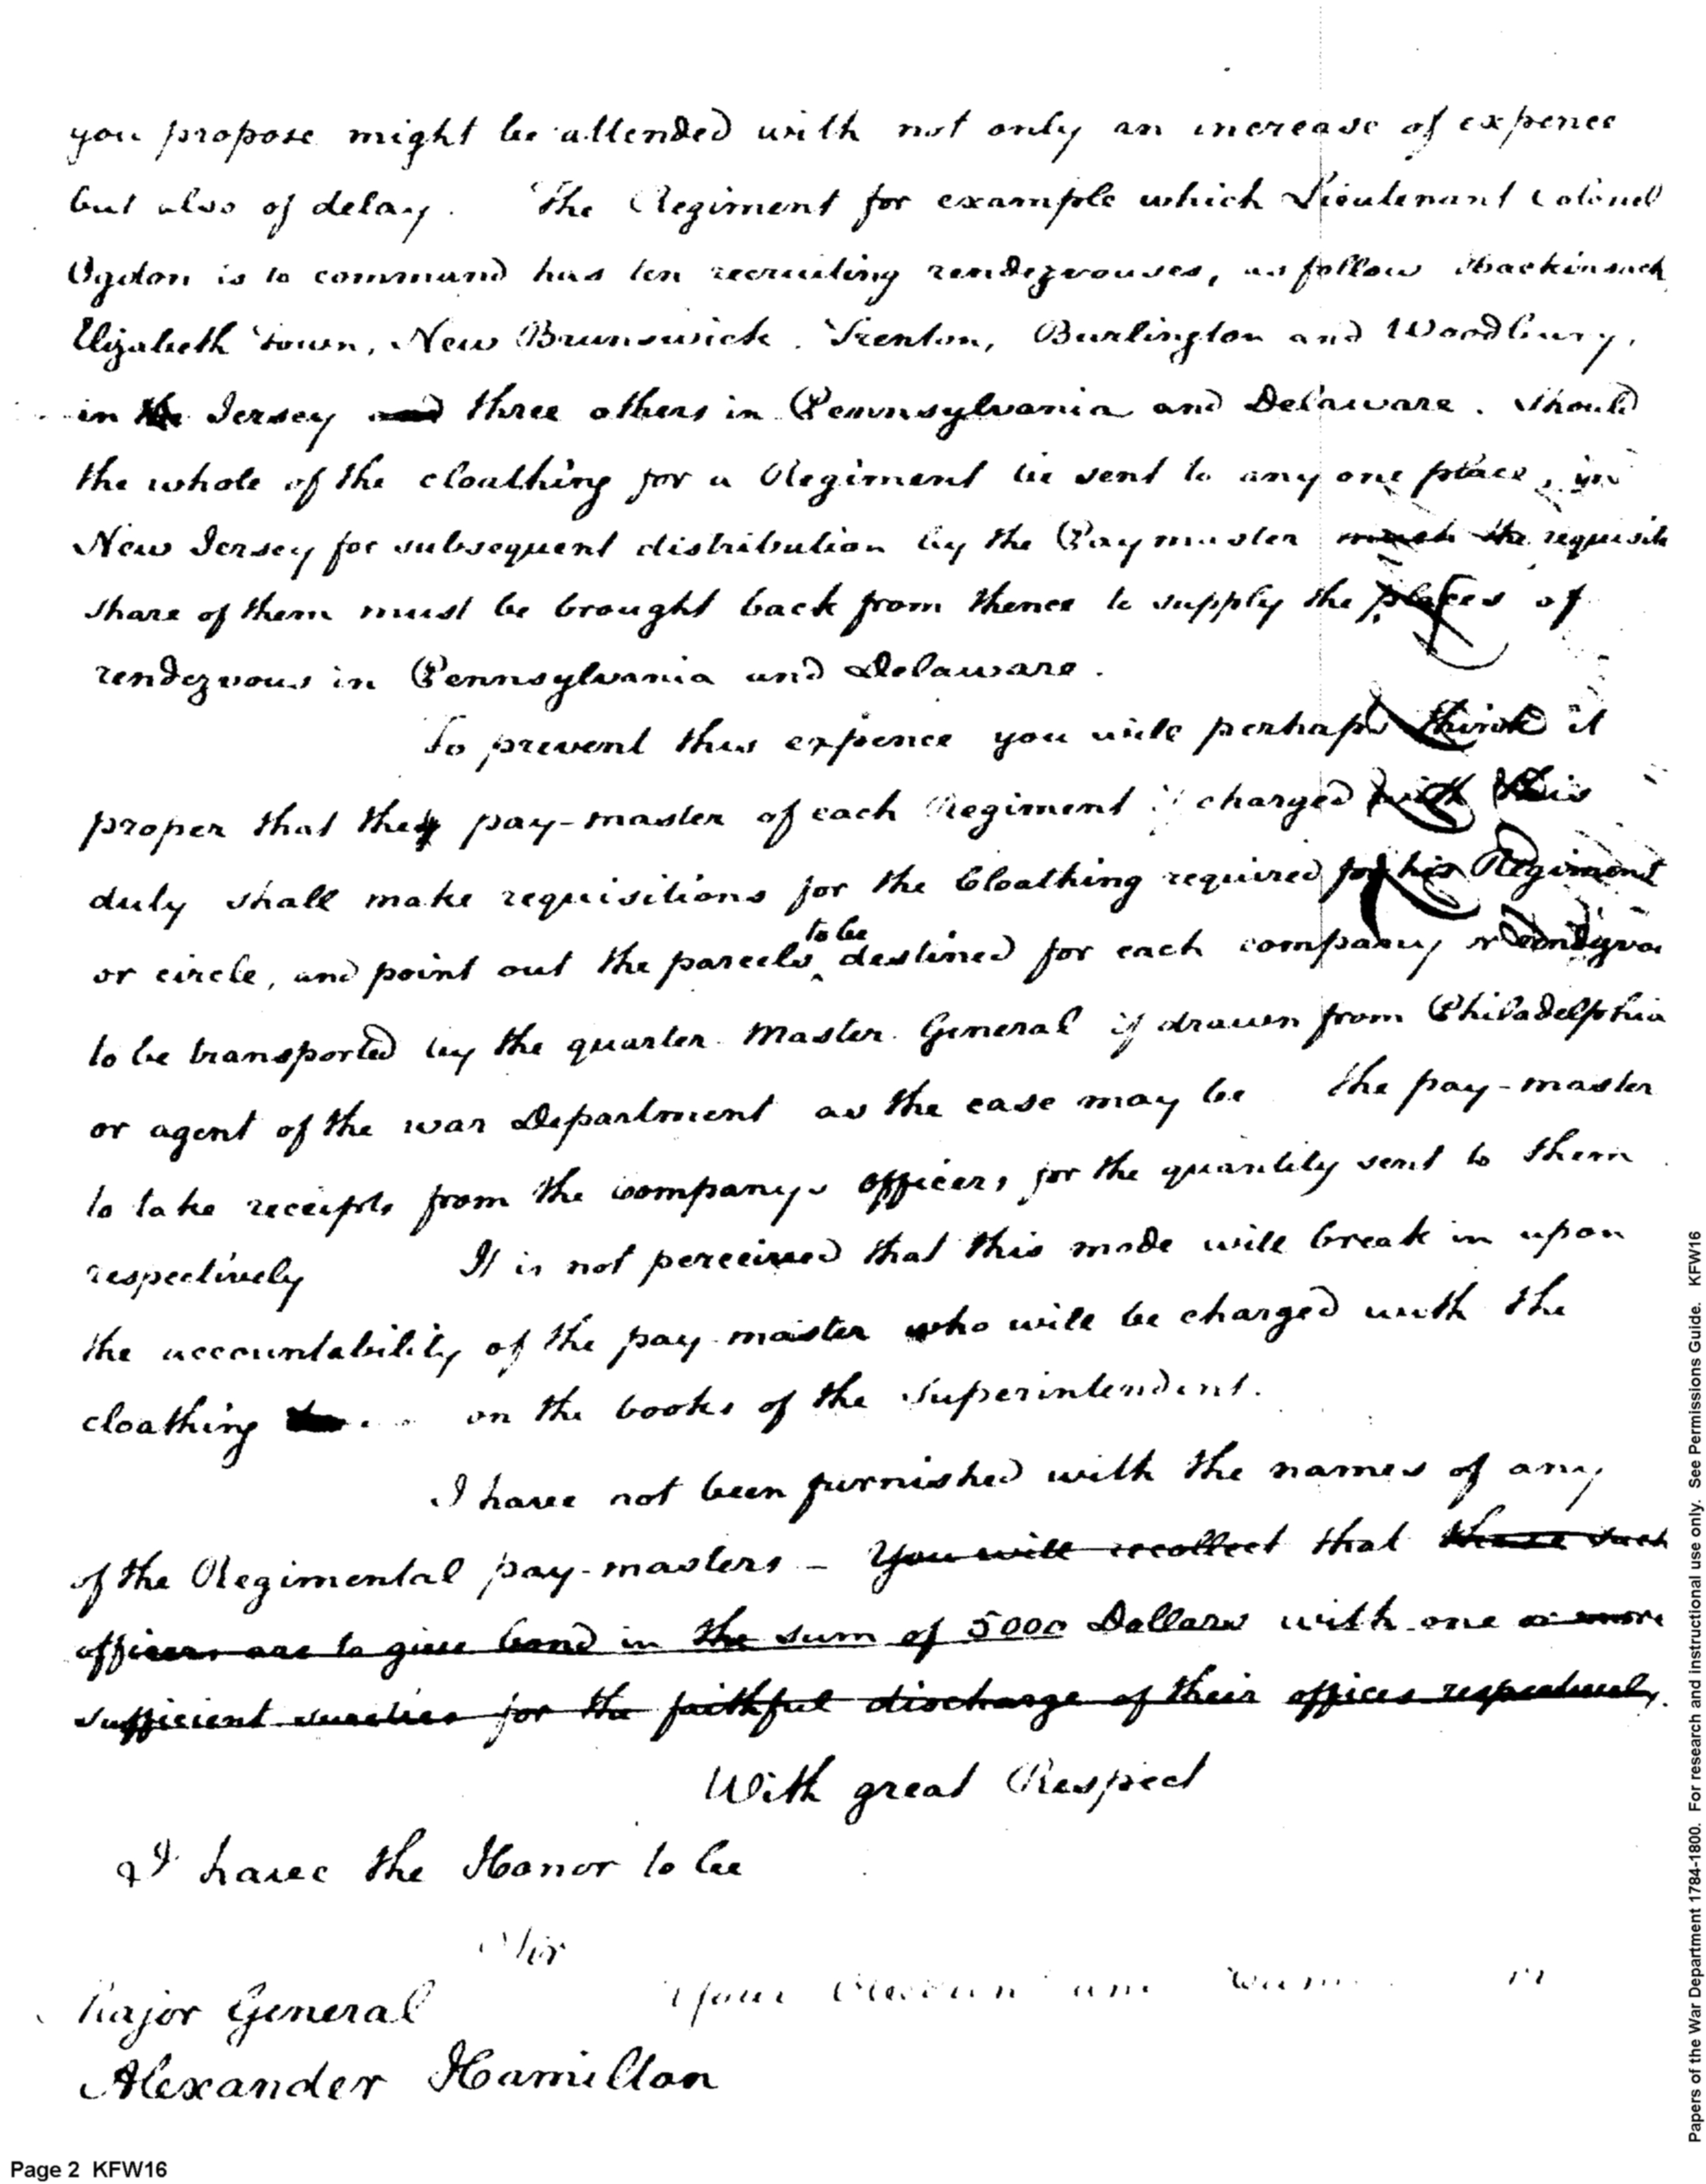 you propose might be attended with not only an increase of expence
but also of delay. The Regiment for example which Lieutenant Colonel
Ogdon is to command has ten recruiting rendezvouses, as follow Hackinsack
Elizabeth Town, New Brunswick. Trenton, Burlington and Woodbury,
in the Jersey and three others in Pennsylvania and Delaware. Should
the whole of the cloathing for a Regiment be sent to any one place, in
New Jersey for subsequent distribution by the Paymaster much the requisite
share of them must be brought back from thence to supply the places of
rendezvous in Pennsylvania and Delaware.
To prevent this expence you will perhaps think it
proper that they pay-master of each Regiment if charged with this
duly shall make requisitions for the Cloathing required for his Regiment
or circle, and point out the parcels to be destined for each company or rendezvous
to be transported by the quarter Master General if drawn from Philadelphia
or agent of the war Department as the case may be the pay-master
to take receipts from the companys officers for the quantity sent to them
respectively It is not perceived that this mode will break in upon
the accountability of the pay-master who will be charged with the
cloathing on the books of the Superintendent.
I have not been furnished with the names of any
of the Regimental pay-masters - You will recollect that these such
officers are to give bond in the sum of 5000 Dollars with one or more
sufficient sureties for the faithful discharge of their offices respectively.
With great Respect
I have the Honor to be
Sir
Your
Major General
Alexander Hamilton
Page 2 KFW16
Papers of the War Department 1784-1800. For research and instructional use only. See Permissions Guide. KFW16